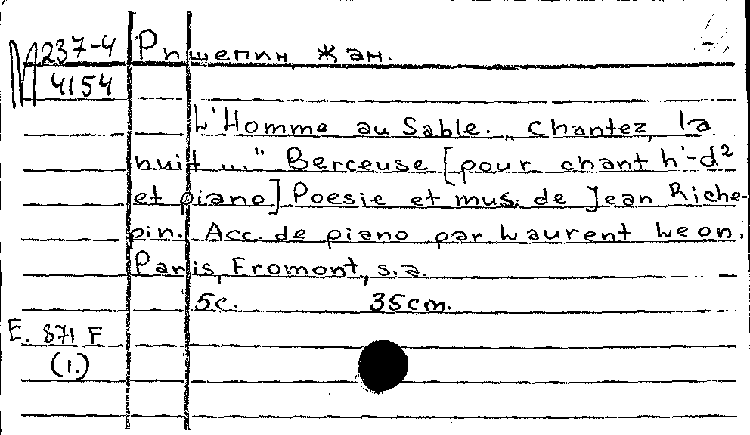 М 237-4
4154
Ришепин, Жан.
L'Homme au Sable. „Chantez, la
nuit ..." Berceuse [pour chant h'-d²
et piano] Poesie et mus. de Jean Riche-
pin. Acc. de piano par Laurent Leon.
Paris, Fromont, s.a.
5c. 35cm.
E. 871 F
(1.)